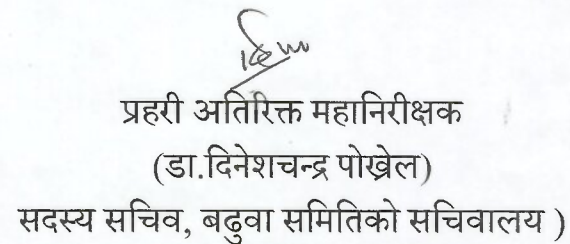 प्रहरी अतिरिक्त महानिरीक्षक
(डा.दिनेशचन्द्र पोख्रेल)
सदस्य सचिव, बढुवा समितिको सचिवालय )